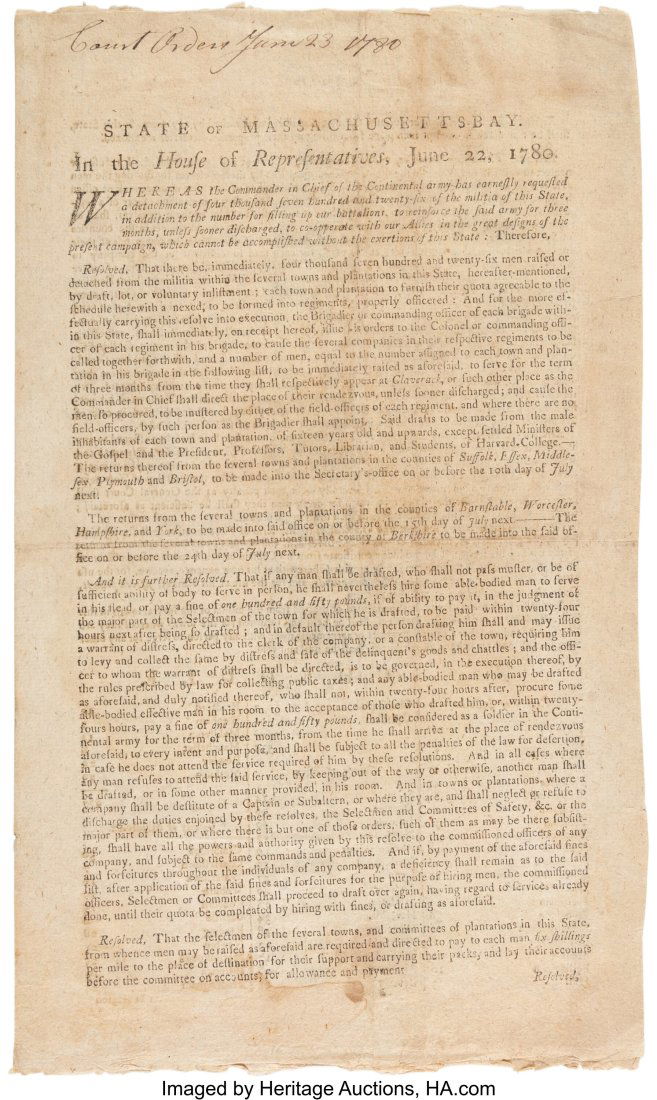 Court Orders June 23 1780
STATE OF MASSACHUSETTS-BAY.
In the Houſe of Repreſentatives, June 22, 1780.
WHEREAS the Commander in Chief of the Continental army has earneſtly requeſted
a detachment of four thouſand ſeven hundred and twenty-ſix of the militia of this State,
in addition to the number for filling up our battalions, to reinforce the ſaid army for three
months, unleſs ſooner diſcharged, to co-opperate with our Allies in the great deſigns of the
preſent campaign, which cannot be accompliſhed without the exertions of this State : Therefore,
Reſolved, That there be, immediately, four thouſand ſeven hundred and twenty-ſix men raiſed or
detached from the militia within the ſeveral towns and plantations in this State, hereafter-mentioned,
by draft, lot, or voluntary inliſtment ; each town and plantation to furniſh their quota agreeable to the
ſchedule herewith annexed, to be formed into regiments, properly officered : And for the more ef-
fectually carrying this reſolve into execution, the Brigadier or commanding officer of each brigade with-
in this State, ſhall immediately, on receipt hereof, iſſue his orders to the Colonel or commanding offi-
cer of each regiment in his brigade, to cauſe the ſeveral companies in their reſpective regiments to be
called together forthwith, and a number of men, equal to the number aſſigned to each town and plan-
tation in his brigade in the following liſt, to be immediately raiſed as aforeſaid, to ſerve for the term
of three months from the time they ſhall reſpectively appear at Claverack, or ſuch other place as the
Commander in Chief ſhall direct the place of their rendezvous, unleſs ſooner diſcharged ; and cauſe the
men, ſo procured, to be muſtered by either of the field-officers of each regiment, and where there are no
field-officers, by ſuch perſon as the Brigadier ſhall appoint. Said drafts to be made from the male
inhabitants of each town and plantation, of ſixteen years old and upwards, except ſettled Miniſters of
the Goſpel and the Preſident, Profeſſors, Tutors, Librarian, and Students, of Harvard-College.—
The returns thereof from the ſeveral towns and plantations in the counties of Suffolk, Eſſex, Middle-
ſex, Plymouth and Briſtol, to be made into the Secretary's-office on or before the 10th day of July
next.
The returns from the ſeveral towns and plantations in the counties of Barnſtable, Worceſter,
Hampſhire, and York, to be made into ſaid office on or before the 15th day of July next.——The
returns from the ſeveral towns and plantations in the county of Berkſhire to be made into the ſaid of-
fice on or before the 24th day of July next.
And it is further Reſolved, That if any man ſhall be drafted, who ſhall not paſs muſter, or be of
ſufficient ability of body to ſerve in perſon, he ſhall nevertheleſs hire ſome able-bodied man to ſerve
in his ſtead, or pay a fine of one hundred and fifty pounds, if of ability to pay it, in the judgment of
the major part of the Selectmen of the town for which he is drafted, to be paid within twenty-four
hours next after being ſo drafted ; and in default thereof the perſon drafting him ſhall and may iſſue
a warrant of diſtreſs, directed to the clerk of the company, or a conſtable of the town, requiring him
to levy and collect the ſame by diſtreſs and ſale of the delinquent's goods and chattles ; and the offi-
cer to whom the warrant of diſtreſs ſhall be directed, is to be governed, in the execution thereof, by
the rules preſcribed by law for collecting public taxes ; and any able-bodied man who may be drafted
as aforeſaid, and duly notified thereof, who ſhall not, within twenty-four hours after, procure ſome
able-bodied effective man in his room to the acceptance of thoſe who drafted him, or, within twenty-
fours hours, pay a fine of one hundred and fifty pounds, ſhall be conſidered as a ſoldier in the Conti-
nental army for the term of three months, from the time he ſhall arrive at the place of rendezvous
aforeſaid, to every intent and purpoſe, and ſhall be ſubject to all the penalties of the law for deſertion,
in caſe he does not attend the ſervice required of him by theſe reſolutions. And in all caſes where
any man refuſes to attend the ſaid ſervice, by keeping out of the way or otherwiſe, another man ſhall
be drafted, or in ſome other manner provided, in his room. And in towns or plantations, where a
company ſhall be deſtitute of a Captain or Subaltern, or where they are, and ſhall neglect or refuſe to
diſcharge the duties enjoined by theſe reſolves, the Selectmen and Committees of Safety, &c. or the
major part of them, or where there is but one of thoſe orders, ſuch of them as may be there ſubſiſt-
ing, ſhall have all the powers and authority given by this reſolve to the commiſſioned officers of any
company, and ſubject to the ſame commands and penalties. And if, by payment of the aforeſaid fines
and forfeitures throughout the individuals of any company, a deficiency ſhall remain as to the ſaid
liſt, after application of the ſaid fines and forfeitures for the purpoſe of hiring men, the commiſſioned
officers, Selectmen or Committees ſhall proceed to draft over again, having regard to ſervices already
done, until their quota be compleated by hiring with fines, or drafting as aforeſaid.
Reſolved, That the ſelectmen of the ſeveral towns, and committees of plantations in this State,
from whence men may be raiſed as aforeſaid are required and directed to pay to each man ſix ſhillings
per mile to the place of deſtination for their ſupport and carrying their packs, and lay their accounts
before the committee on accounts, for allowance and payment
Reſolved,
Imaged by Heritage Auctions, HA.com